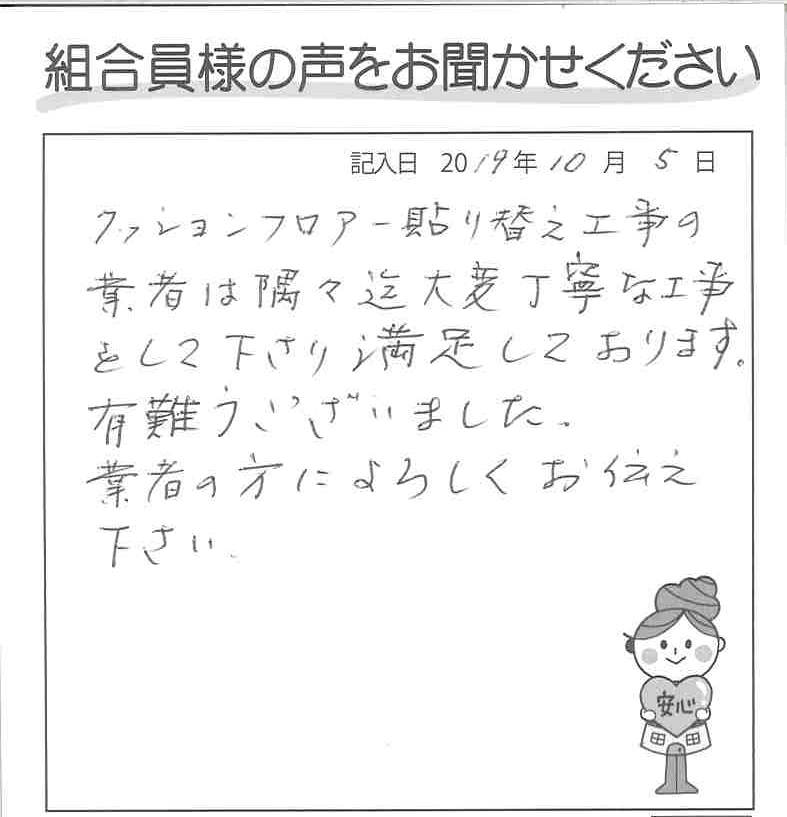 組合員様の声をお聞かせください
記入日 2019年10月5日
クッションフロアー貼り替え工事の
業者は隅々迄大変丁寧な工事
をして下さり満足しております。
有難うございました。
業者の方によろしくお伝え
下さい。
安心